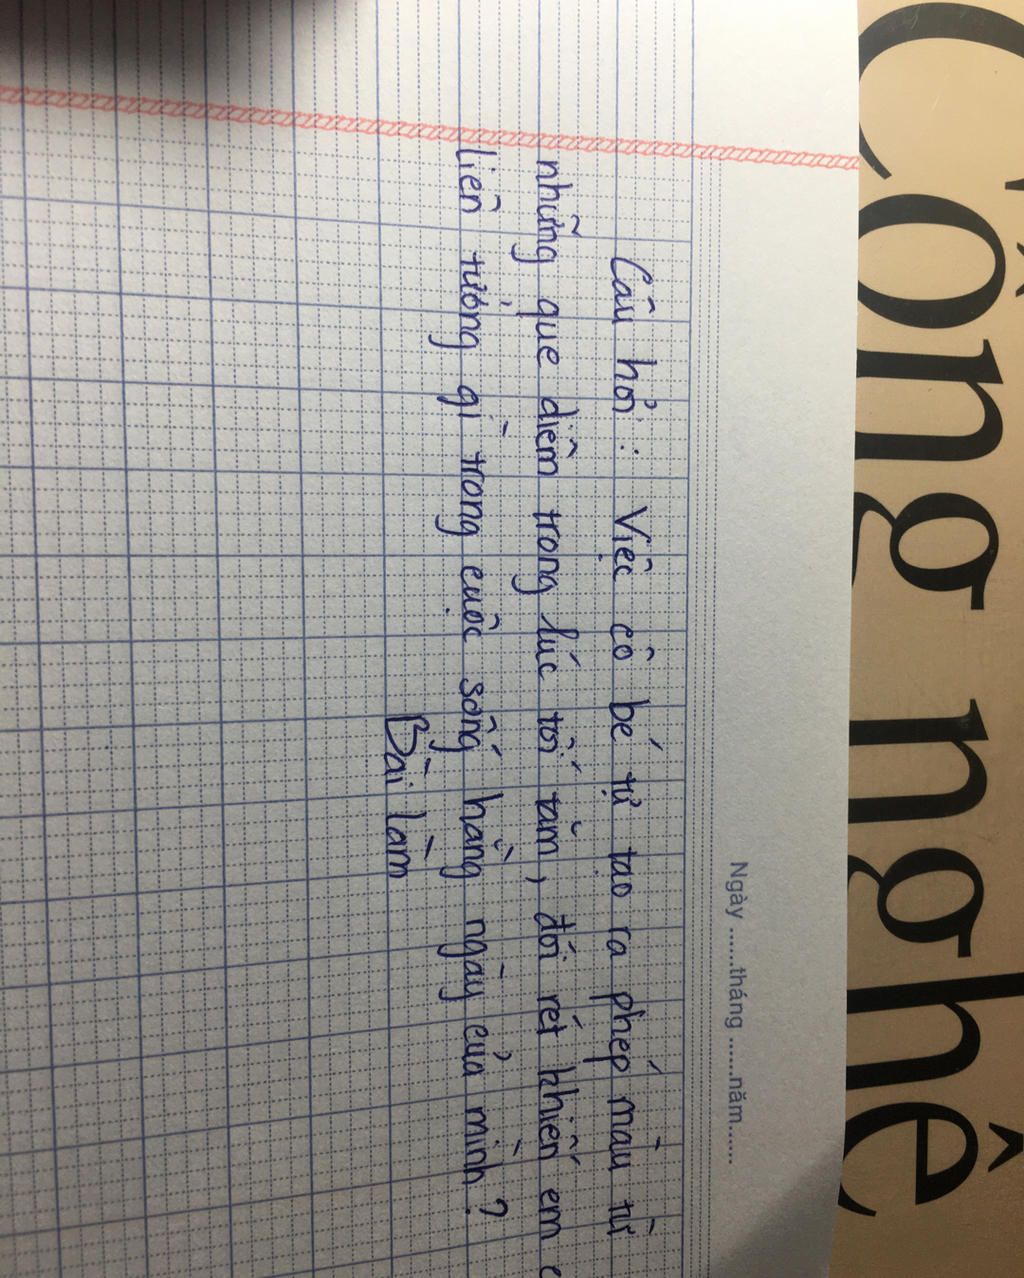 Công nghệ
Ngày ......tháng ......năm......
Câu hỏi: Việc cô bé tự tạo ra phép màu từ
những que diêm trong lúc tối tăm, đói rét khiến em
liên tưởng gì trong cuộc sống hằng ngày của mình?
Bài làm